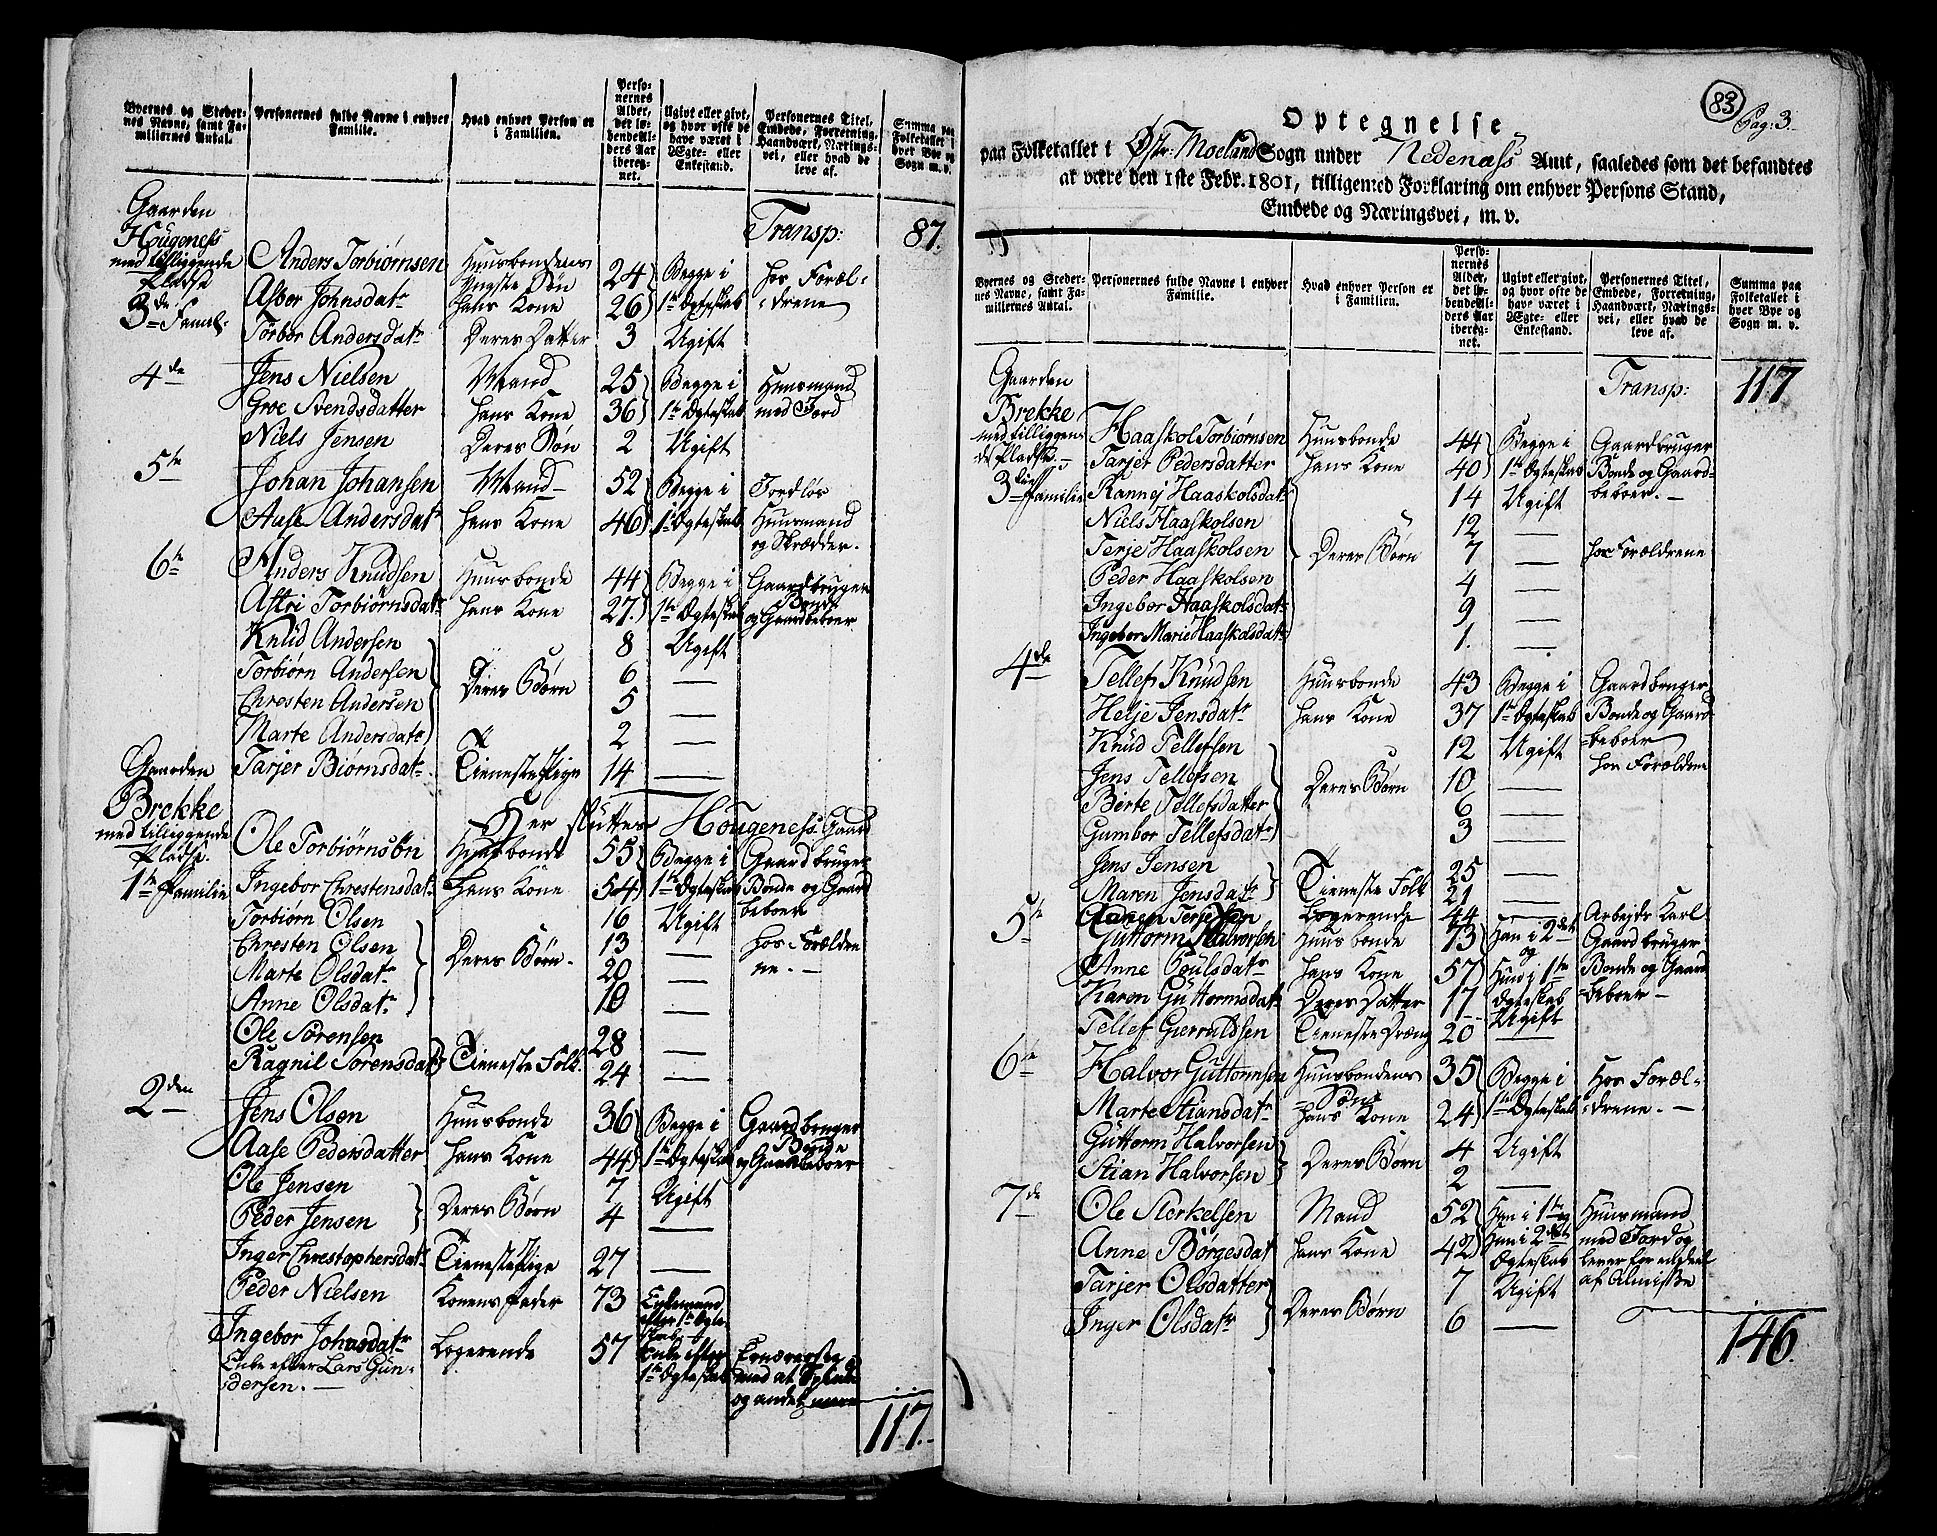 Byernes og Stedernes Navne, samt Familiernes Antal.
Personernes fulde Navne i enhver Familie.
Hvad enhver Person er i Familien.
Personernes Alder, det løbendeAlders Aar iberegnet.
Ugivt eller givt, og hvor ofte de have været i Ægte- eller Enkestand.
Personernes Titel, Embede, Forretning, Haandværk, Næringsvei, eller hvad de leve af.
Summa paa Folketallet i hver Bye og Sogn m. v.
Gaarden Transp: 87.
Hougeness
med tilliggende Pladse
3de Famil:
Anders Torbiørnsen Huusbondens yngste Søn 24 Begge i hos Foræl-
Asbor Johnsdatr hans Kone 26 1te Ægteskab drene
Torbor Andersdatr Deres Datter 3 Ugift
4de Jens Nielsen Mand 25 Begge i Huusmand
Groe Svendsdatter hans Kone 36 1te Ægteskab med Jord
Niels Jensen Deres Søn 2 Ugift
5te Johan Johansen Mand 52 Begge i Jordløs
Aase Andersdatr hans Kone 46 1te Ægteskab Huusmand
og Skrædder.
6te Anders Knudsen Huusbonde 44 Begge i Gaardbruger
Astri Torbiørnsdatr hans Kone 27. 1te Ægteskab Bonde og Gaardbeboer
Knud Andersen 8 Ugift
Torbiørn Andersen Deres Børn 6 —
Chresten Andersen 5 —
Marte Andersdatr 2 —
Gaarden Tarjer Biørnsdatr Tienestepige 14 —
Brekke Her slutter Hougeness Gaard
med tilliggende Pladse.
Ole Torbiørnsøn Huusbonde 55 Begge i Gaardbruger
1te Familie Ingebor Chrestensdatr hans Kone 54 1te Ægteskab Bonde og Gaard
Torbiørn Olsen 16 Ugift beboer
Chresten Olsen Deres Børn. 13 — hos Forældre
Marte Olsdatr 20 — ne.
Anne Olsdatr 10 —
Ole Sørensen 28 —
Ragnil Sørensdatr Tieneste Folk. 24 —
2den Jens Olsen Huusbonde 36 Begge i Gaardbruger
Aase Pedersdatter hans Kone 44 1te Ægteskab Bonde og Gaardbeboer
Ole Jensen 7 Ugift
Peder Jensen Deres Børn 4 —
Inger Chrestophersdatr Tienestepige 27 —
Peder Nielsen Konens Fader 73 Enkemand
efter 1te Ægteskab
Ingebor Johnsdatr Logerende 57 Enke efter
Enke efter Lars Gundersen. 1te Ægteskab med at
og andet mere
117.
83 Pag: 3.
Optegnelse
paa Folketallet i Østr: Moeland Sogn under Nedenæss Amt, saaledes som det befandtes
at være den 1ste Febr. 1801, tilligemed Forklaring om enhver Persons Stand,
Embede og Næringsvei, m. v.
Byernes og Stedernes Navne, samt Familiernes Antal.
Personernes fulde Navne i enhver Familie.
Hvad enhver Person er i Familien.
Personernes Alder, det løbendeAlders Aar iberegnet.
Ugivt eller givt, og hvor ofte de have været i Ægte- eller Enkestand.
Personernes Titel, Embede, Forretning, Haandværk, Næringsvei, eller hvad de leve af.
Summa paa Folketallet i hver Bye og Sogn m. v.
Gaarden Transp: 117
Brekke
med tilliggende Pladse.
3die Familie
Haaskol Torbiørnsen Huusbonde 44 Begge i Gaardbruger
Tarjer Pedersdatter hans Kone 40 1te Ægteskab Bonde og Gaard-
Rannej Haaskolsdatr 14 Ugift beboer.
Niels Haaskolsen 12 —
Terje Haaskolsen Deres Børn 7 — hos Forældrene
Peder Haaskolsen 4 —
Ingebor Haaskolsdatr 9 —
Ingebor Marie Haaskolsdatr 1. —
4de Tellef Knudsen Huusbonde 43 Begge i Gaardbruger
Helje Jensdatr hans Kone 37 1te Ægteskab Bonde og Gaard
Knud Tellefsen 12 Ugift beboer
Jens Tellefsen Deres Børn 10 — hos Forældrene
Berte Tellefsdatter 6 —
Gumbor Tellefsdatr 3 —
Jens Jensen 25 —
Maren Jensdatr Tieneste Folk 21 —
Logerende 44 — Arbejds Karl
5te Guttorm Halvorsen Huusbonde 73 Han i 2det Gaardbruger
og
Anne Poulsdatr hans Kone 57 Hun i 1te Bonde og Gaard
Karen Guttormsdatr Deres Datter 17 Ægteskab beboer
Ugift
Tellef Gierruldsen Tieneste Dræng 20 —
6te Halvor Guttormsen Huusbondens 35 Begge i Hos Foræl-
Søn
Marte Stiansdatr hans Kone 24 1te Ægteskab drene.
Guttorm Halvorsen Deres Børn 4 Ugift
Stian Halvorsen 2 —
7de Ole Storkelsen Mand 52 Han i 1te og Huusmand
Anne Børgesdat hans Kone 42 Hun i 2det med Jord og
Ægteskab lever for en deel
Tarjer Olsdatter Deres Børn 7 Ugift af Almisse
Inger Olsdatr 6 —
146.